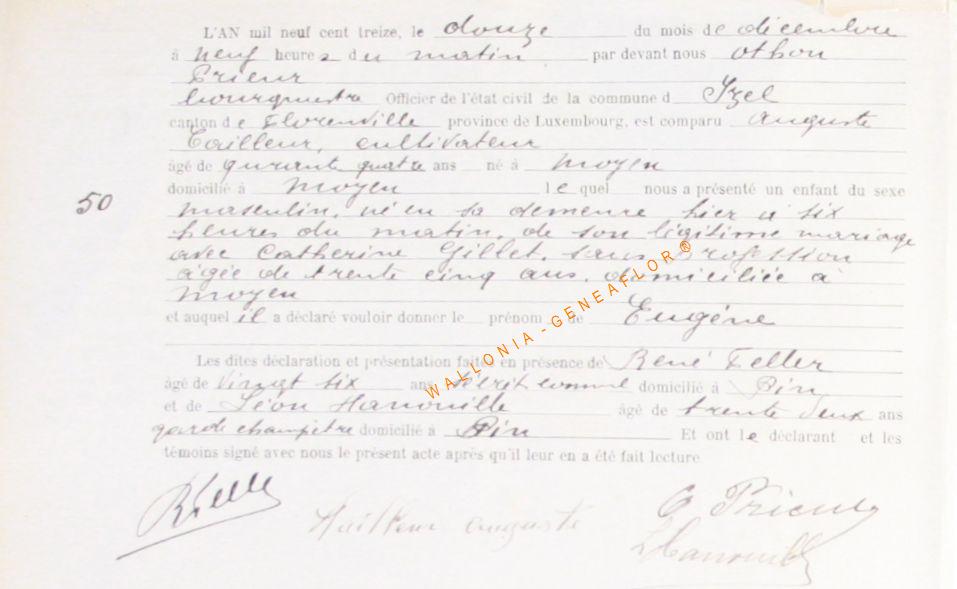 L'AN mil neuf cent treize, le douze du mois de décembre
à neuf heures du matin par devant nous Othon
Prieur
bourgmestre Officier de l'état civil de la commune d Izel
canton de Florenville province de Luxembourg, est comparu Auguste
Tailleur, cultivateur
âgé de quarante quatre ans né à Moyen
domicilié à Moyen lequel nous a présenté un enfant du sexe
50
masculin, né en sa demeure hier à six
heures du matin, de son légitime mariage
avec Catherine Gillet, sans profession
âgée de trente cinq ans, domiciliée à
Moyen
et auquel il a déclaré vouloir donner le prénom de Eugène
Les dites déclaration et présentation faites en présence de René Feller
âgé de vingt six ans domicilié à Pin
et de Léon Hanouille âgé de trente deux ans
garde champêtre domicilié à Pin Et ont le déclarant et les
témoins signé avec nous le présent acte après qu'il leur en a été fait lecture
RFeller
Tailleur Auguste
O Prieur
LHanouille
WALLONIA-GENEAFLOR®